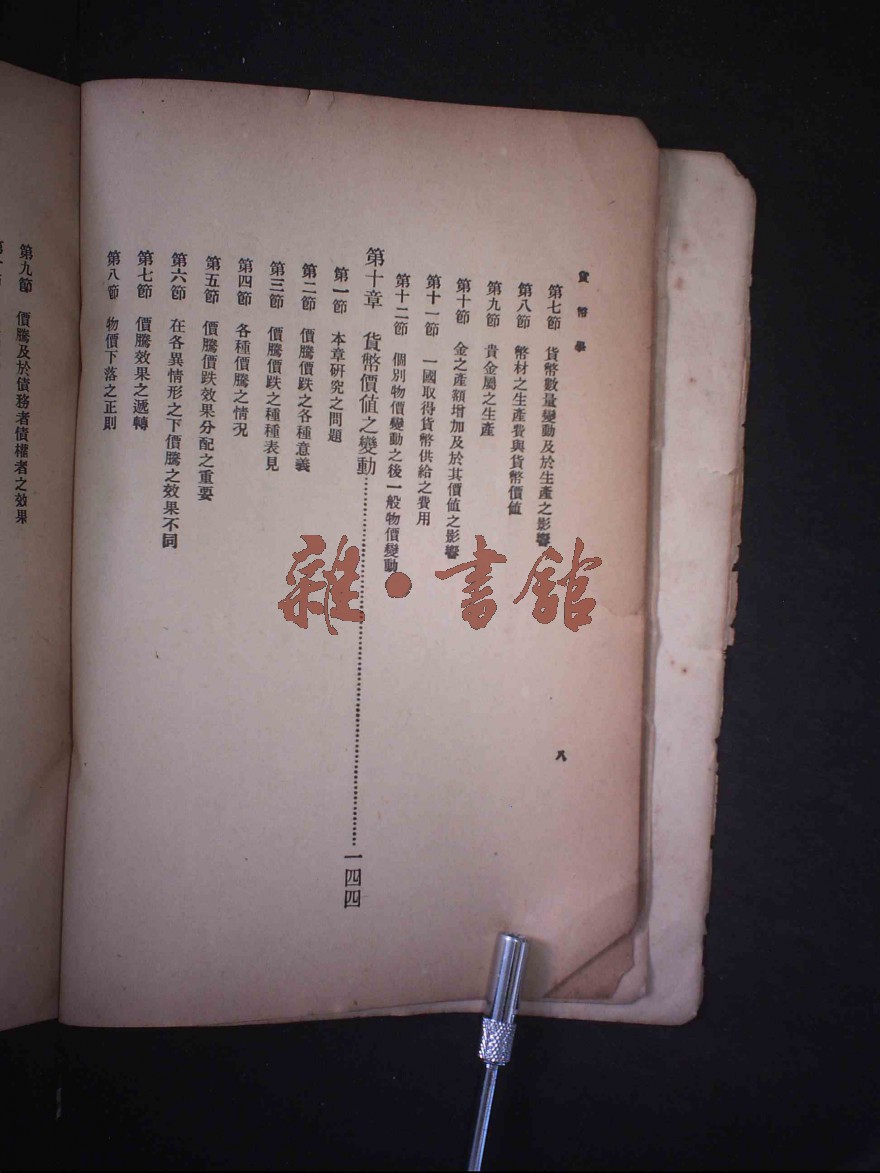 貨幣學
八
第七節 貨幣數量變動及於生產之影響
第八節 幣材之生產費與貨幣價值
第九節 貴金屬之生產
第十節 金之產額增加及於其價值之影響
第十一節 一國取得貨幣供給之費用
第十二節 個別物價變動之後一般物價變動
第十章 貨幣價值之變動……一四四
第一節 本章研究之問題
第二節 價騰價跌之各種意義
第三節 價騰價跌之種種表見
第四節 各種價騰之情况
第五節 價騰價跌效果分配之重要
第六節 在各異情形之下價騰之效果不同
第七節 價騰效果之遞轉
第八節 物價下落之正則
第九節 價騰及於債務者債權者之效果
雜·書館